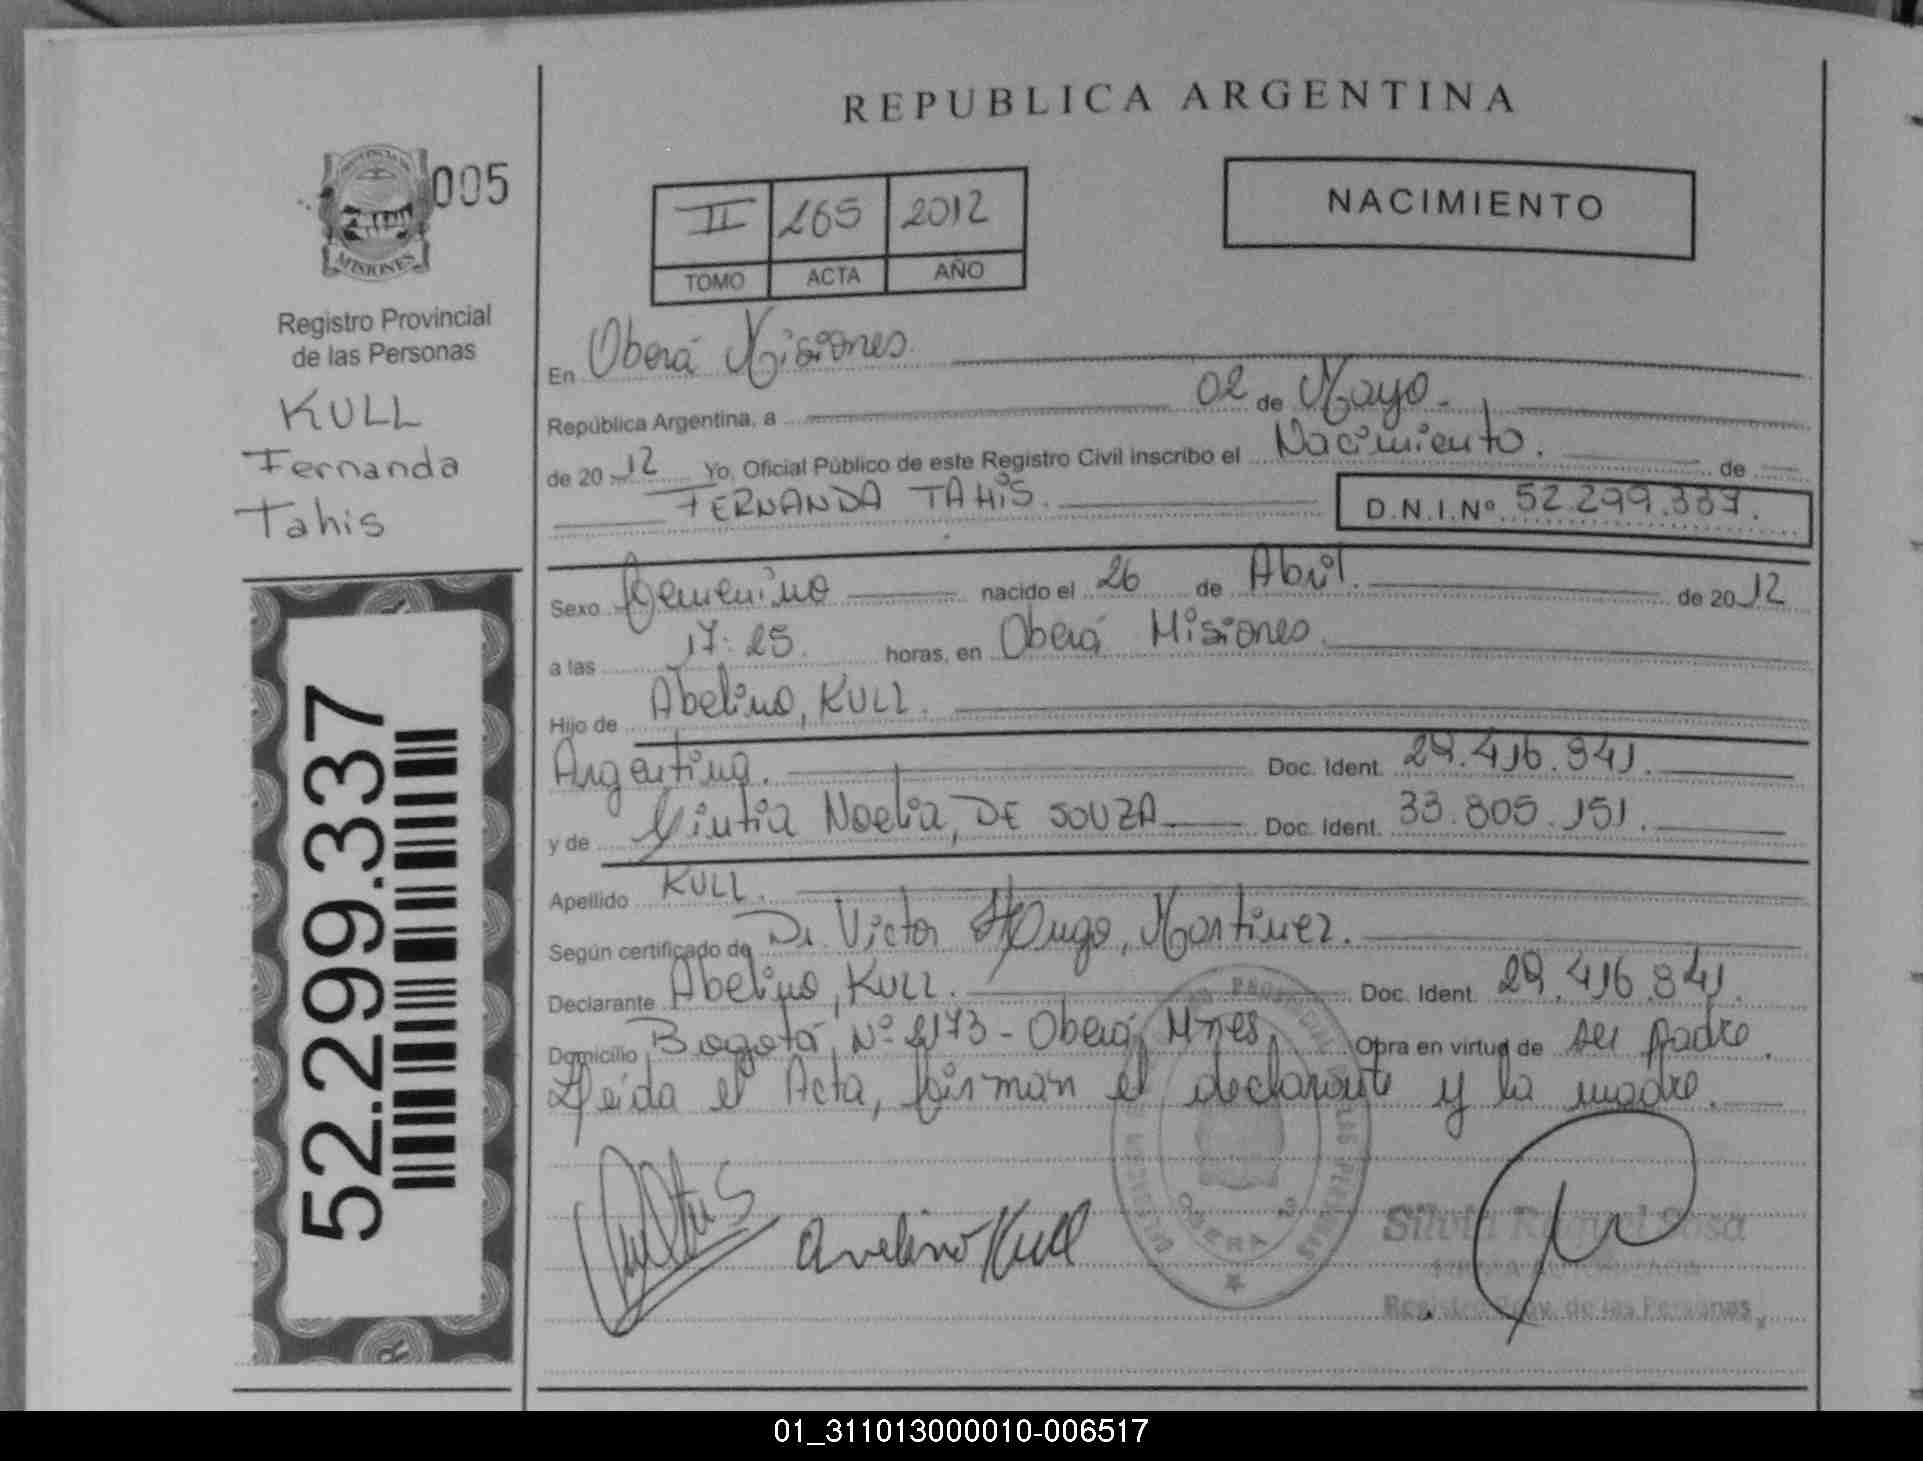 REPUBLICA ARGENTINA
PROVINCIA DE
MISIONES
005
II 265 2012
TOMO ACTA AÑO
NACIMIENTO
Registro Provincial
de las Personas
KULL
Fernanda
Tahis
52.299.337
En Oberá Misiones.
República Argentina, a 02 de Mayo.
de 20 12 Yo, Oficial Público de este Registro Civil inscribo el Nacimiento. de
FERNANDA TAHIS. D.N.I.Nº 52.299.337.
Sexo Femenino nacido el 26 de Abril. de 20 12
a las 17:25. horas, en Oberá Misiones.
Hijo de Abelino, KULL.
Argentina. Doc. Ident. 29.416.841.
y de Cintia Noelia, DE SOUZA Doc. Ident. 33.805.151.
Apellido KULL.
Según certificado de Dr. Victor Hugo, Martinez.
Declarante Abelino, KULL. Doc. Ident. 29.416.841.
Domicilio Bogotá Nº 2173 - Oberá, Mnes, Obra en virtud de ser padre.
Leída el Acta, firman el declarante y la madre.
Avelino Kull
OBERA
Silvia Raquel Sosa
FIRMA AUTORIZADA
Registro Prov. de las Personas
01_311013000010-006517